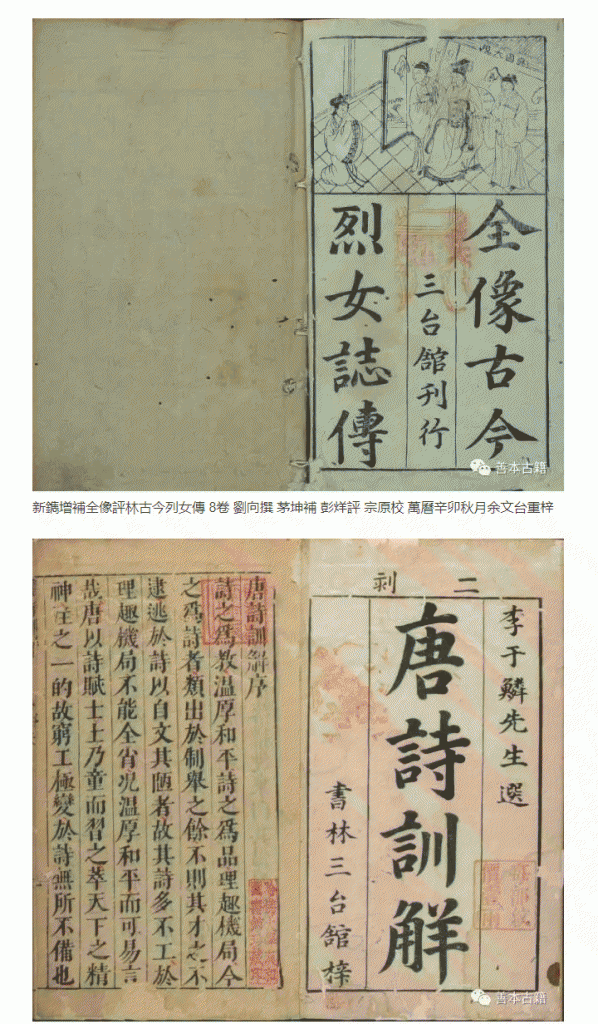 全像古今
三台館刊行
烈女誌傳
善本古籍
新鐫增補全像評林古今列女傳 8卷 劉向撰 茅坤補 彭烊評 宗原校 萬曆辛卯秋月余文台重梓
二刻
李于鱗先生選
唐詩訓解
書林三台館梓
唐詩訓解序
詩之爲教溫厚和平詩之爲品理趣機局今
之爲詩者類出於制舉之餘不則其才之不
逮逃於詩以自文其陋者故其詩多不工於
理趣機局不能全省况溫厚和平而可易言
哉唐以詩賦士士乃童而習之萃天下之精
神注之一的故窮工極變於詩無所不備也
善本古籍